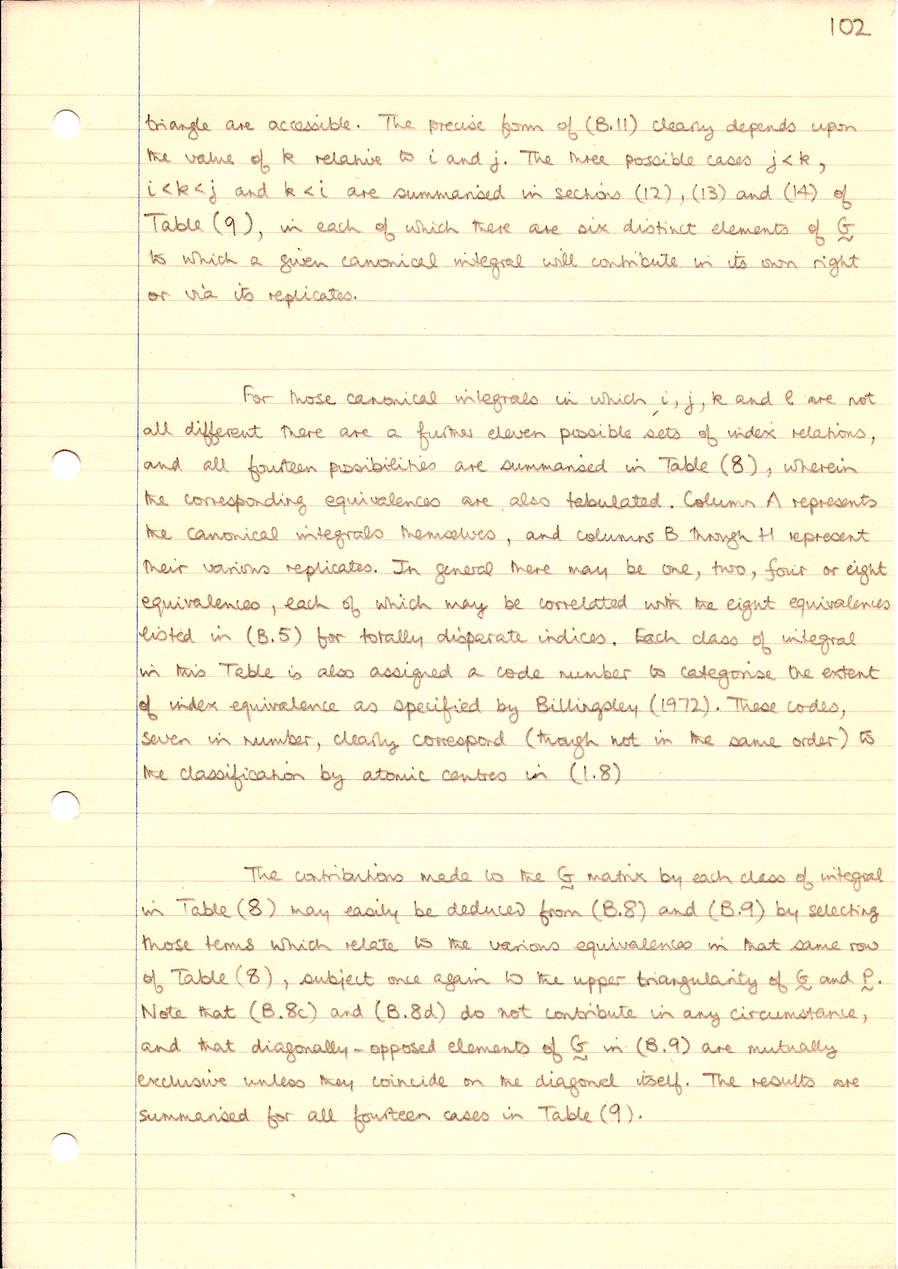 102
triangle are accessible. The precise form of (B.11) clearly depends upon
the value of k relative to i and j. The three possible cases j<k,
i<k<j and k<i are summarised in sections (12), (13) and (14) of
Table (9), in each of which there are six distinct elements of G
to which a given canonical integral will contribute in its own right
or via its replicates.
For those canonical integrals in which i, j, k and l are not
all different there are a further eleven possible sets of index relations,
and all fourteen possibilities are summarised in Table (8), wherein
the corresponding equivalences are also tabulated. Column A represents
the canonical integrals themselves, and columns B through H represent
their various replicates. In general there may be one, two, four or eight
equivalences, each of which may be correlated with the eight equivalences
listed in (B.5) for totally disparate indices. Each class of integral
in this Table is also assigned a code number to categorise the extent
of index equivalence as specified by Billingsley (1972). These codes,
seven in number, clearly correspond (though not in the same order) to
the classification by atomic centres in (1.8)
The contributions made to the G matrix by each class of integral
in Table (8) may easily be deduced from (B.8) and (B.9) by selecting
those terms which relate to the various equivalences in that same row
of Table (8), subject once again to the upper triangularity of G and P.
Note that (B.8c) and (B.8d) do not contribute in any circumstance,
and that diagonally-opposed elements of G in (B.9) are mutually
exclusive unless they coincide on the diagonal itself. The results are
summarised for all fourteen cases in Table (9).